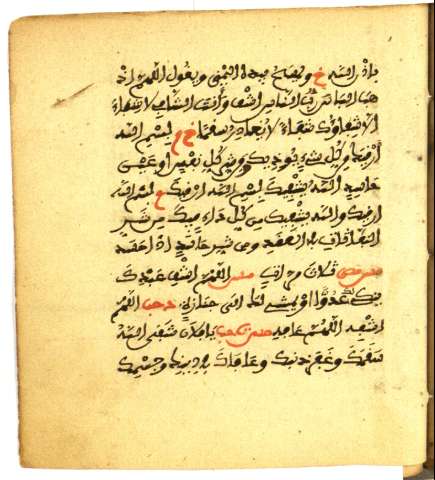 باذن الله خ ويمسح بيده اليمنى ويقول اللهم اذ
هب الباس رب الناس اشف وانت الشافي لا شفاء
الا شفاؤك شفاء لا يغادر سقما خ م بسم الله
ارقيك من كل شيء يوذيك ومن شر كل نفس او عين
حاسد الله يشفيك بسم الله ارقيك م بسم الله
ارقيك والله يشفيك من كل داء فيك من شر
النفاثات في العقد ومن شر حاسد اذا حسد
ثلاث مرات مس اللهم اشف عبدك
ينك لك عدوا او يمشي لك الى جنازة د حب اللهم
اشفه اللهم عافه يا فلان شفى الله
سقمك وغفر ذنبك وعافاك في دينك وجسمك